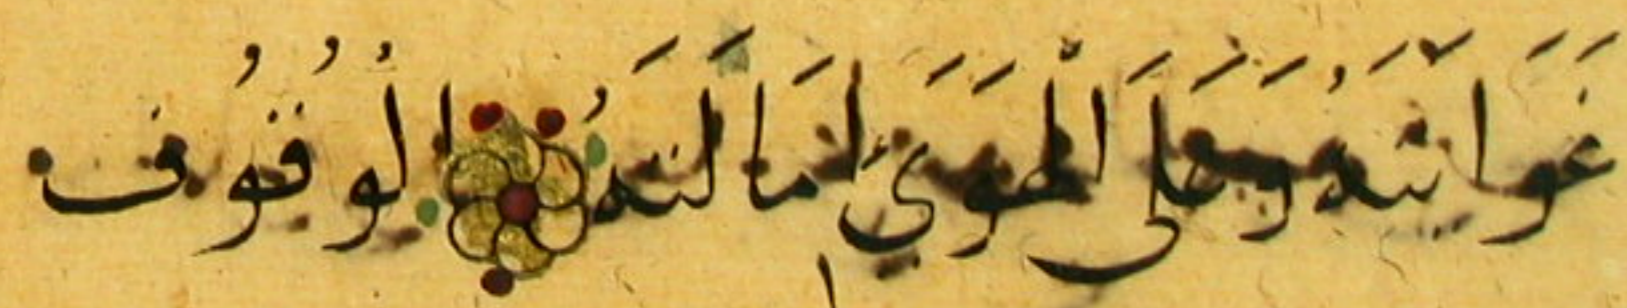 غَوَاشِيَهُ وَعَلَى الْهَوَى إِمَالَتَهُ الْوُقُوفُ